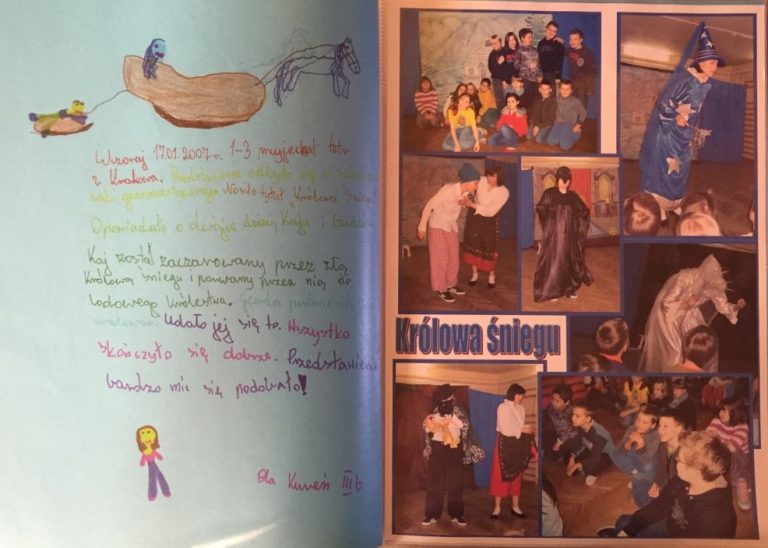 Wczoraj 17.01.2007r. 1-3 przyjechał teatr
z Krakowa. Przedstawienie odbyło się w szkolnej
sali gimnastycznej. Nosiło tytuł "Królowa śniegu"
Opowiadało o dwójce dzieci, Kaju i
Kaj został zaczarowany przez złą
królową śniegu i porwany przez nią do
lodowego królestwa. Gerda postanowiła
Udało jej się to. Wszystko
skończyło się dobrze. Przedstawienie
bardzo mi się podobało!
Ola III b
Królowa śniegu